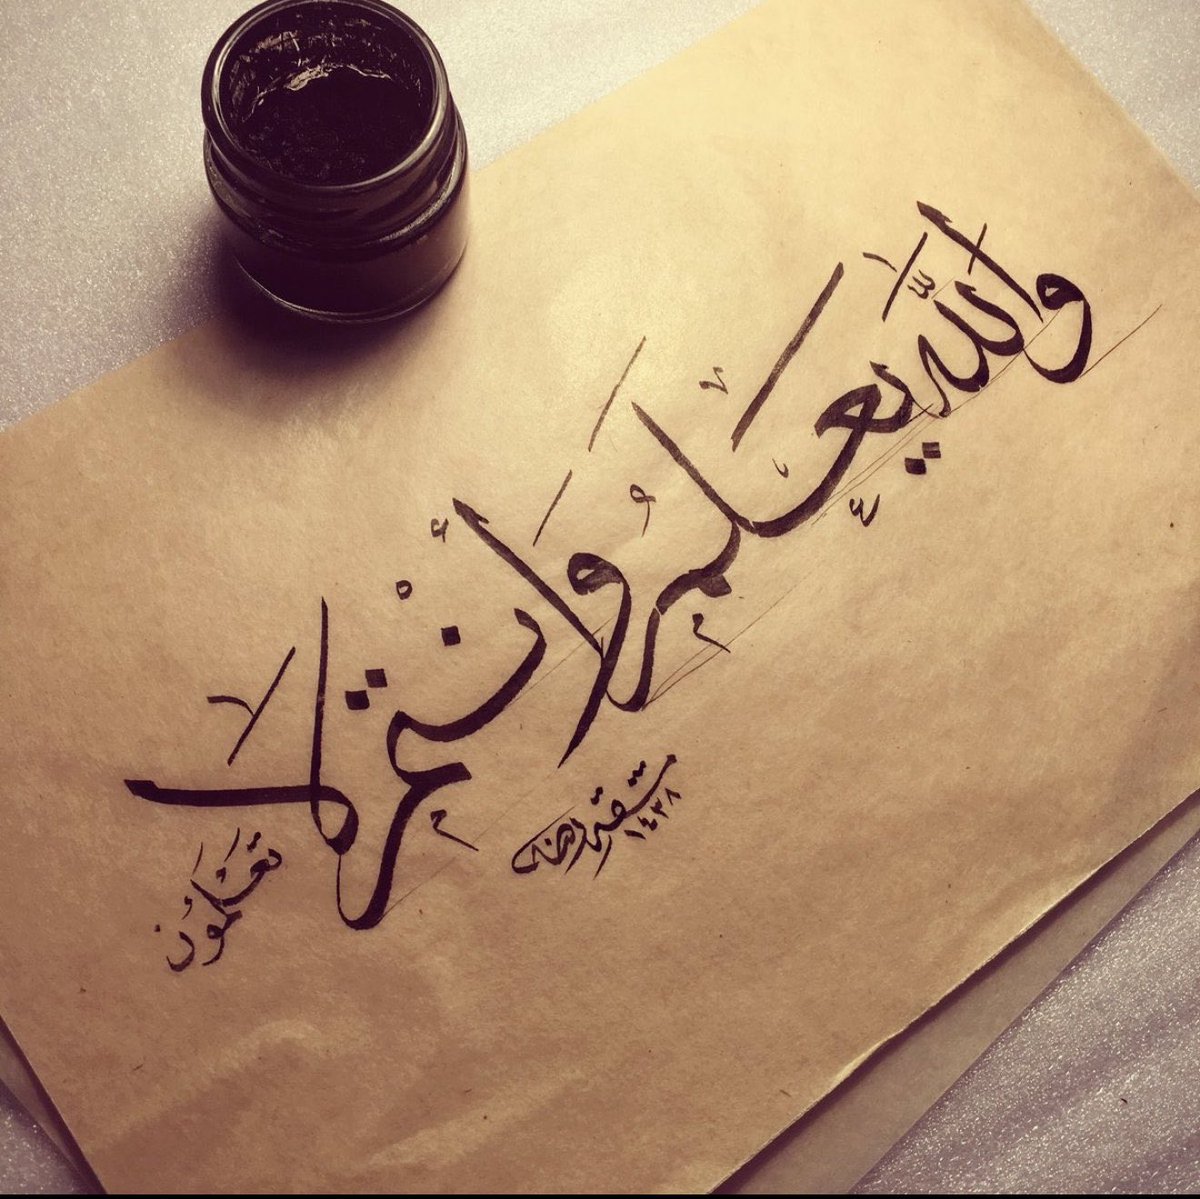 وَاللَّهُ يَعْلَمُ وَأَنْتُمْ لَا
تَعْلَمُونَ
١٤٣٨